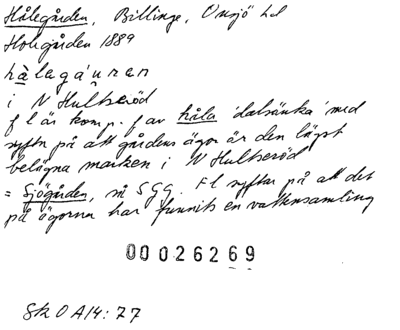 Hålegården, Billinge, Onsjö hd
Holegården 1889
hàlegáuren
i N Hultseröd
fl är komp. f av håla 'dalsänka' med
syftn på att gårdens ägor är den lägst
belägna marken i N Hultseröd
= Sjögården, så SGG. Fl syftar på att det
på ägorna har funnits en vattensamling
00026269
Sk O A14:77